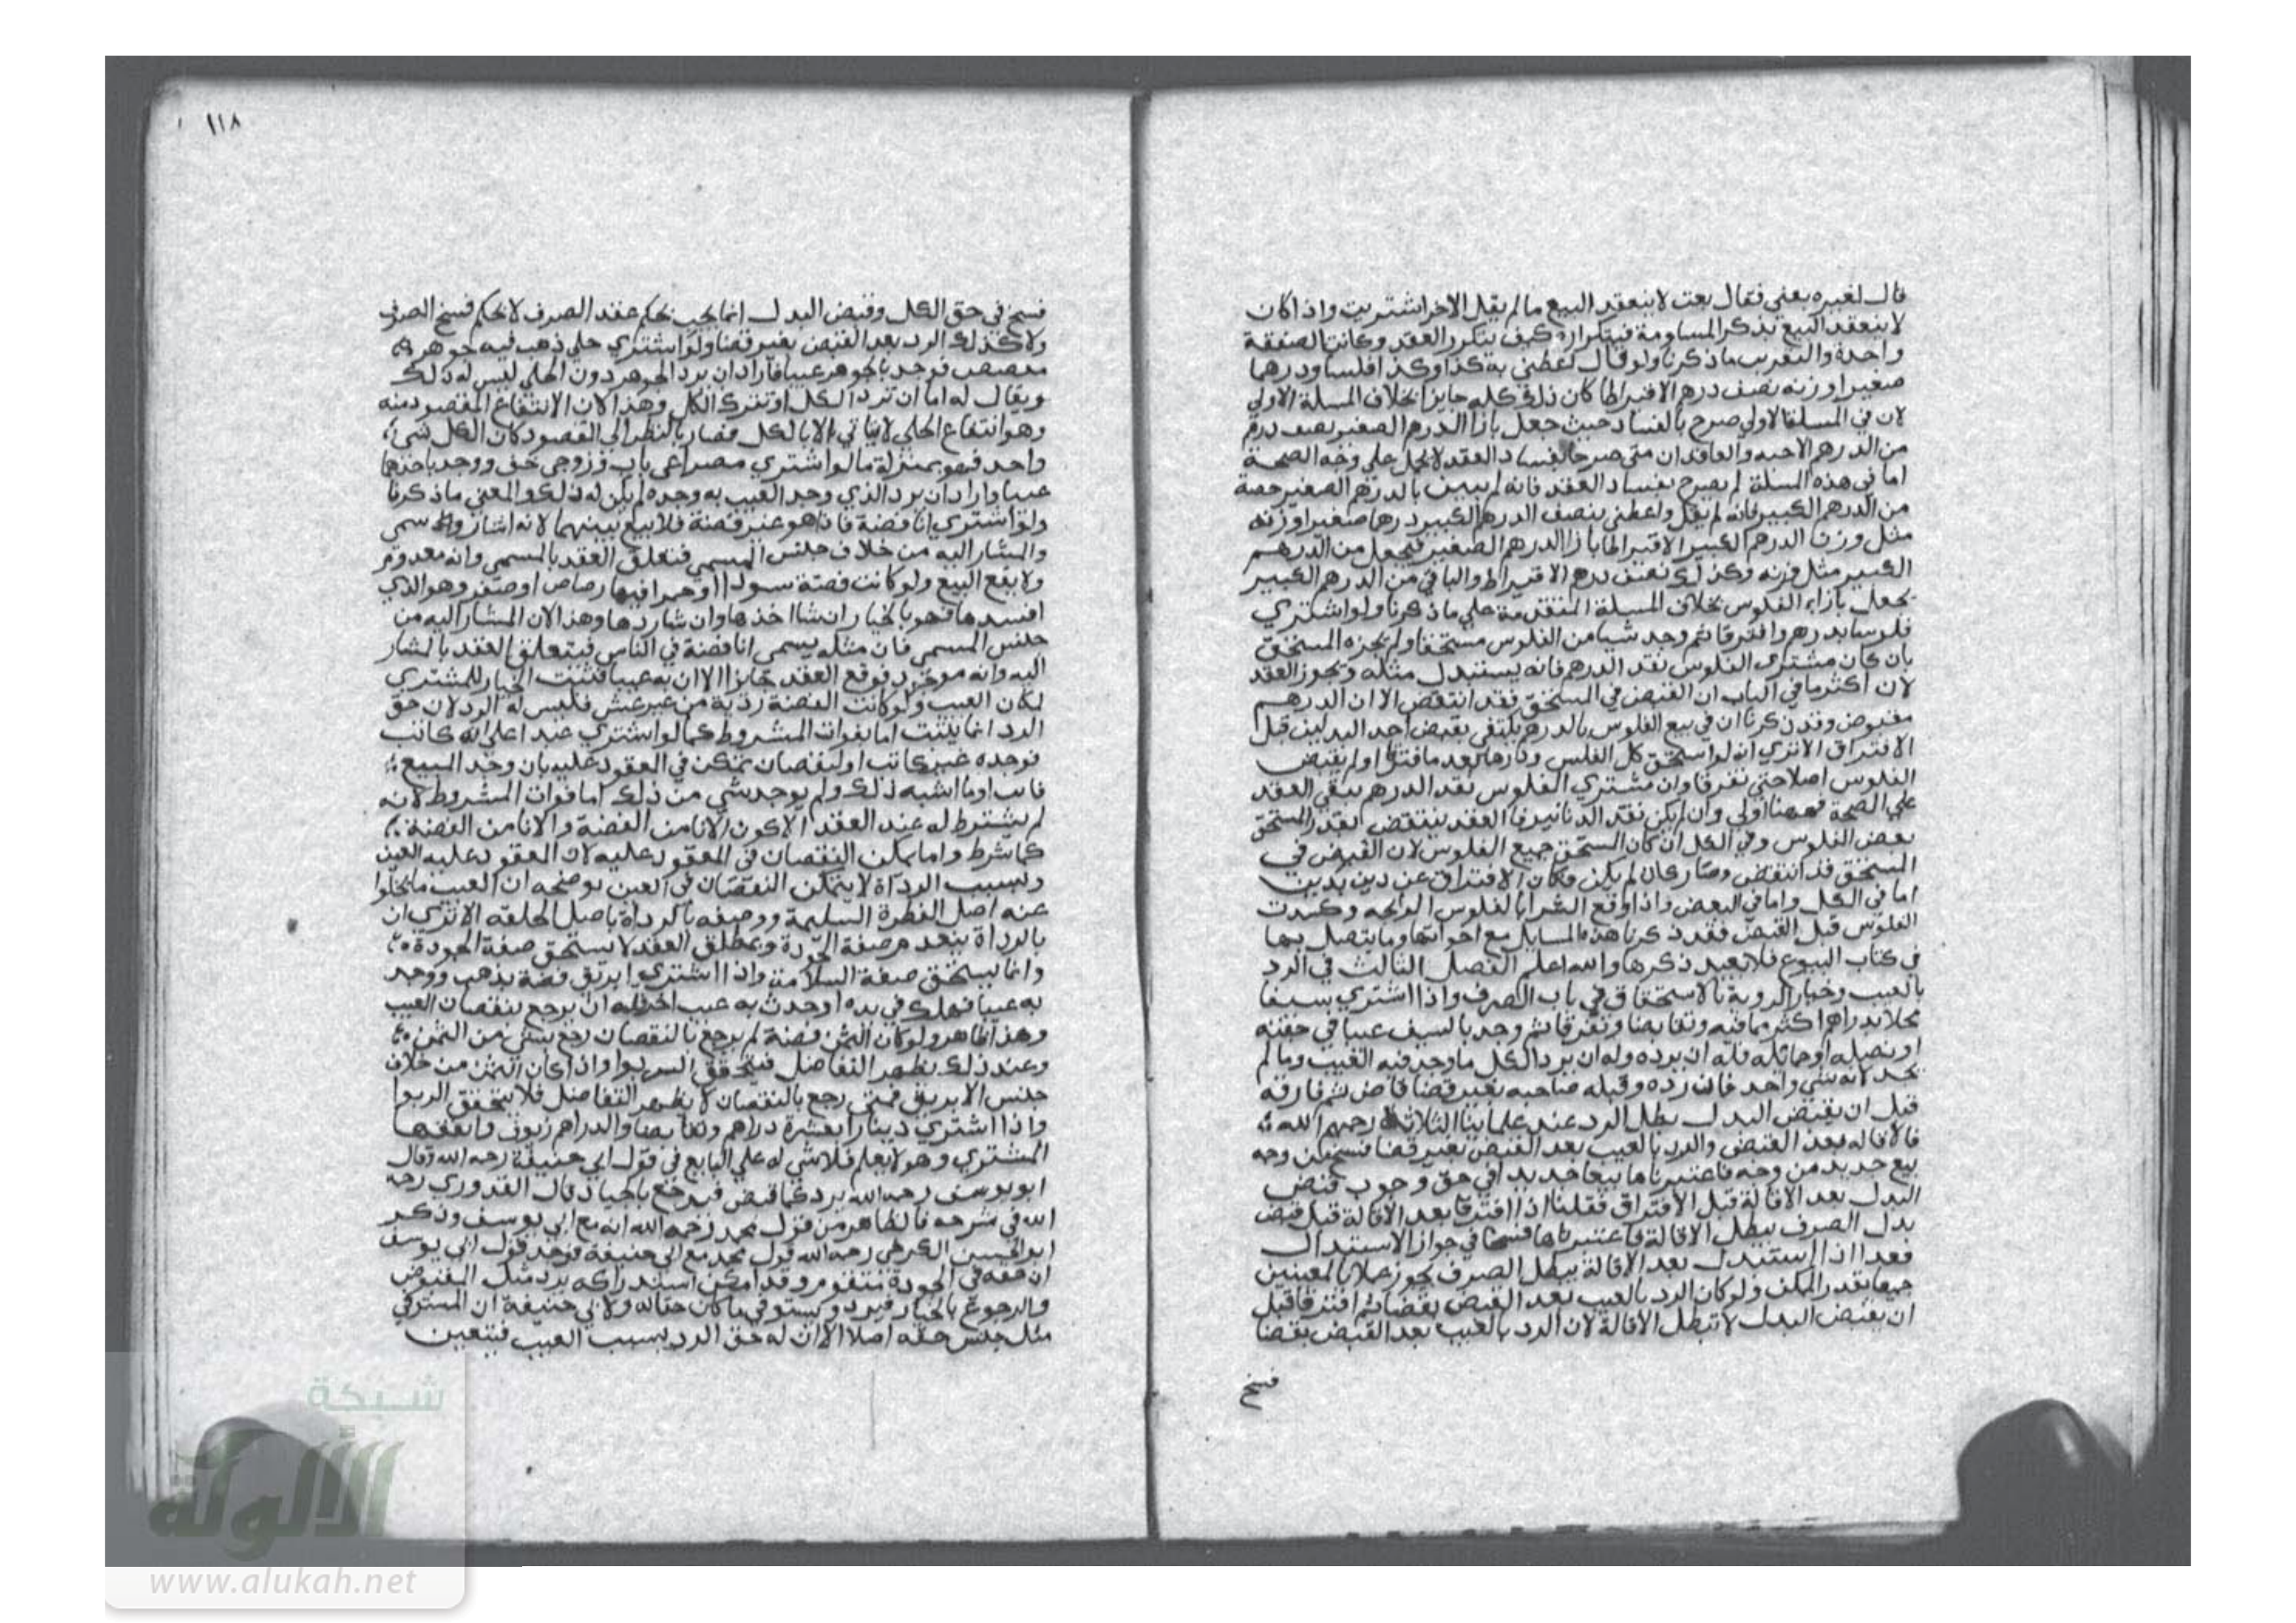 قال لغيره بعني فقال بعت لا ينعقد البيع ما لم يقل الاخر اشتريت واذا كان
لا ينعقد البيع بذكر المساومة فبتكراره كيف يتكرر العقد وكانت الصفقة
واحدة والتقريب ما ذكرنا ولو قال اعطني به كذا وكذا فلسا ودرهما
صغيرا وزنه نصف درهم الا قيراطا كان ذلك كله جايزا بخلاف المسلة الاولي
لان في المسلة الاولي صرح بالفساد حيث جعل بازا الدرهم الصغير نصف درهم
من الدرهم الا حبه والعاقدان متي صرحا بفساد العقد لا يحمل علي وجه الصحة
اما في هذه المسلة لم يصرح بفساد العقد فانه لم يبين بالدرهم الصغير حصة
من الدرهم الكبير فانه لم يقل واعطني بنصف الدرهم الكبير درهما صغيرا وزنه
مثل وزن الدرهم الكبير الا قيراطا بازا الدرهم الصغير فيجعل من الدرهم
الكبير مثل وزنه وكذلك نصف درهم الا قيراط والباقي من الدرهم الكبير
يجعل بازاء الفلوس بخلاف المسلة المتقدمة علي ما ذكرنا ولو اشتري
فلوسا بدرهم وافترقا ثم وجد شيا من الفلوس مستحقا ولم يجزه المستحق
بان كان مشتري الفلوس نقد الدرهم فانه يستبدل مثله ويجوز العقد
لان اكثر ما في الباب ان القبض في المستحق فقد انتقض الا ان الدرهم
مقبوض وقد ذكرنا ان في بيع الفلوس بالدرهم يكتفي بقبض احد البدلين قبل
الافتراق الا تري انه لو استحق كل الفلس وردها بعد ما افترقا او لم يقبض
الفلوس اصلا حتي تفرقا وان مشتري الفلوس نقد الدرهم يبقي العقد
علي الصحة فههنا اولي وان لم يكن نقد الدنانير فالعقد ينتقض بقدر المستحق
بعض الفلوس وفي الكل ان كان المستحق جميع الفلوس لان القبض في
المستحق قد انتقض وصار كان لم يكن فكان الافتراق عن دين بدين
اما في الكل واما في البعض واذا وقع الشرا بالفلوس الرايجه وكسدت
الفلوس قبل القبض فقد ذكرنا هذه المسايل مع اخواتها وما يتصل بها
في كتاب البيوع فلا نعيد ذكرها والله اعلم الفصل الثالث في الرد
بالعيب وخيار الروية بالاستحقاق في باب الصرف واذا اشتري سيفا
محلا بدراهم اكثر مما فيه وتقابضا وتفرقا ثم وجد بالسيف عيبا في جفنه
او نصله او حمايله فله ان يرده وله ان يرد الكل ما وجد فيه العيب وما لم
يجد لانه شي واحد فان رده وقبله صاحبه بغير قضا قاض ثم فارقه
قبل ان يقبض البدل بطل الرد عند علماينا الثلاثة رحمهم الله
فالاقاله بعد القبض والرد بالعيب بعد القبض بغير قضا فسخ من وجه
بيع جديد من وجه فاعتبرناها بيعا جديدا في حق وجوب قبض
البدل بعد الاقالة قبل الافتراق فقلنا اذا افترقا بعد الاقالة قبل قبض
بدل الصرف يبطل الاقالة فاعتبرناها فسخا في جواز الاستبدال
فعدا اذا استبدل بعد الاقالة ببدل الصرف يجوز عملا بالمعنيين
جميعا بقدر الممكن ولو كان الرد بالعيب بعد القبض بقضا ثم افترقا قبل
ان يقبض البدل لا تبطل الاقالة لان الرد بالعيب بعد القبض بقضا
فسخ
١١٨
فسخ في حق الكل وقبض البدل انما يجب بحكم عقد الصرف لا بحكم فسخ الصرف
ولا كذلك الرد بعد القبض بغير قضا ولو اشتري حلي ذهب فيه جوهر
مفصص فوجد بالجوهر عيبا فاراد ان يرد الجوهر دون الحلي ليس له ذلك
ويقال له اما ان ترد الكل او تترك الكل وهذا لان الانتفاع المقصود منه
وهو انتفاع الحلي لا يتاتي الا بالكل فصار بالنظر الي المقصود كان الكل شيء
واحد فهو بمنزلة ما لو اشتري مصراعي باب او زوجي خف ووجد باحدهما
عيبا واراد ان يرد الذي وجد العيب به وحده لم يكن له ذلك والمعني ما ذكرنا
ولو اشتري انا فضة فاذا هو غير فضة فلا بيع بينهما لانه اشار وسمي
والمشار اليه من خلاف جنس المسمي فتعلق العقد بالمسمي وانه معدوم
ولا يقع البيع ولو كانت فضة سودا او حمرا فيها رصاص او صفر وهو الذي
افسدها فهو بالخيار ان شا اخذها وان شا ردها وهذا لان المشار اليه من
جنس المسمي فان مثله يسمي انا فضة في الناس فيتعلق العقد بالمشار
اليه وانه موجود فوقع العقد جايزا الا ان به عيبا فثبت الخيار للمشتري
لمكان العيب ولو كانت الفضة ردية من غير غش فليس له الرد لان حق
الرد انما يثبت اما بفوات المشروط كما لو اشتري عبدا علي انه كاتب
فوجده غير كاتب او لنقصان تمكن في العقود عليه بان وجد المبيع
فايب او ما اشبه ذلك ولم يوجد شي من ذلك اما فوات المشروط لانه
لم يشترط له عند العقد الا كون الانا من الفضة والانا من الفضة
كما شرط واما يمكن النقصان في المعقود عليه لان المعقود عليه العين
وبسبب الرداة لا يتمكن النقصان في العين يوضحه ان العيب ما يخلوا
عنه اصل الفطرة السليمة ووصفه بالرداة باصل الخلقه الا تري ان
بالرداة ينعدم صفة الجودة وبمطلق العقد لا يستحق صفة الجودة
وانما يستحق صفة السلامة واذا اشتري ابريق فضة بذهب ووجد
به عيبا فهلك في يده او حدث به عيب اخر فله ان يرجع بنقصان العيب
وهذا ظاهر ولو كان الثمن فضة لم يرجع بالنقصان رجع بشي من الثمن
وعند ذلك يظهر التفاضل فيتحقق الربوا واذا كان الثمن من خلاف
جنس الابريق فمتي رجع بالنقصان لا يظهر التفاضل فلا يتحقق الربوا
واذا اشتري دينارا بعشرة دراهم وتقابضا والدراهم زيوف وانفقها
المشتري وهو لا يعلم فلا شي له علي البايع في قول ابي حنيفة رحمه الله وقال
ابو يوسف رحمه الله يرد مثل ما قبض فيرجع بالجياد قال القدوري رحمه
الله في شرحه فالظاهر من قول محمد رحمه الله انه مع ابي يوسف وذكر
ابو الحسين الكرخي رحمه الله قول محمد مع ابي حنيفة فوجه قول ابي يوسف
ان حقه في الجودة متقوم وقد امكن استدراكه برد مثل المقبوض
والرجوع بالخيار فيرد ويستوفي ما كان حقا له ولابي حنيفة ان المستوفي
مثل جنس حقه اصلا الا ان له حق الرد بسبب العيب فيتعين
شبكة
الألوكة
www.alukah.net